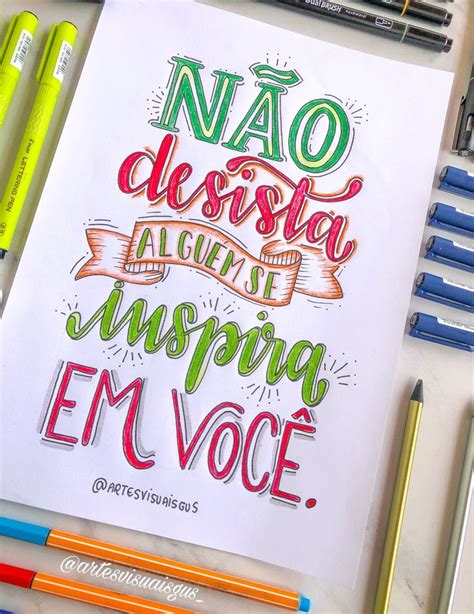 NÃO
desista
ALGUÉM SE
inspira
EM VOCÊ.
@ARTESVISUAISGUS
@artesvisuaisgus_
Pilot LETTERING PEN
DUALBRUSH